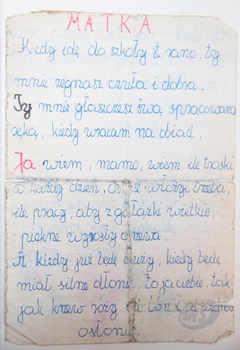 MATKA
Kiedy idę do szkoły z rano, ty
mnie żegnasz czuła i dobra.
Ty mnie głaszczesz swą spracowaną
ręką, kiedy wracam na obiad.
Ja wiem, mamo, wiem ile troski
w każdy dzień, włożyć trzeba,
ile pracy, aby z gałązki wielkie,
piękne wyrosły drzewa.
A kiedy już będę duży, kiedy będę
miał silne dłonie, to ja ciebie, tak
jak krzew róży
osłonię.